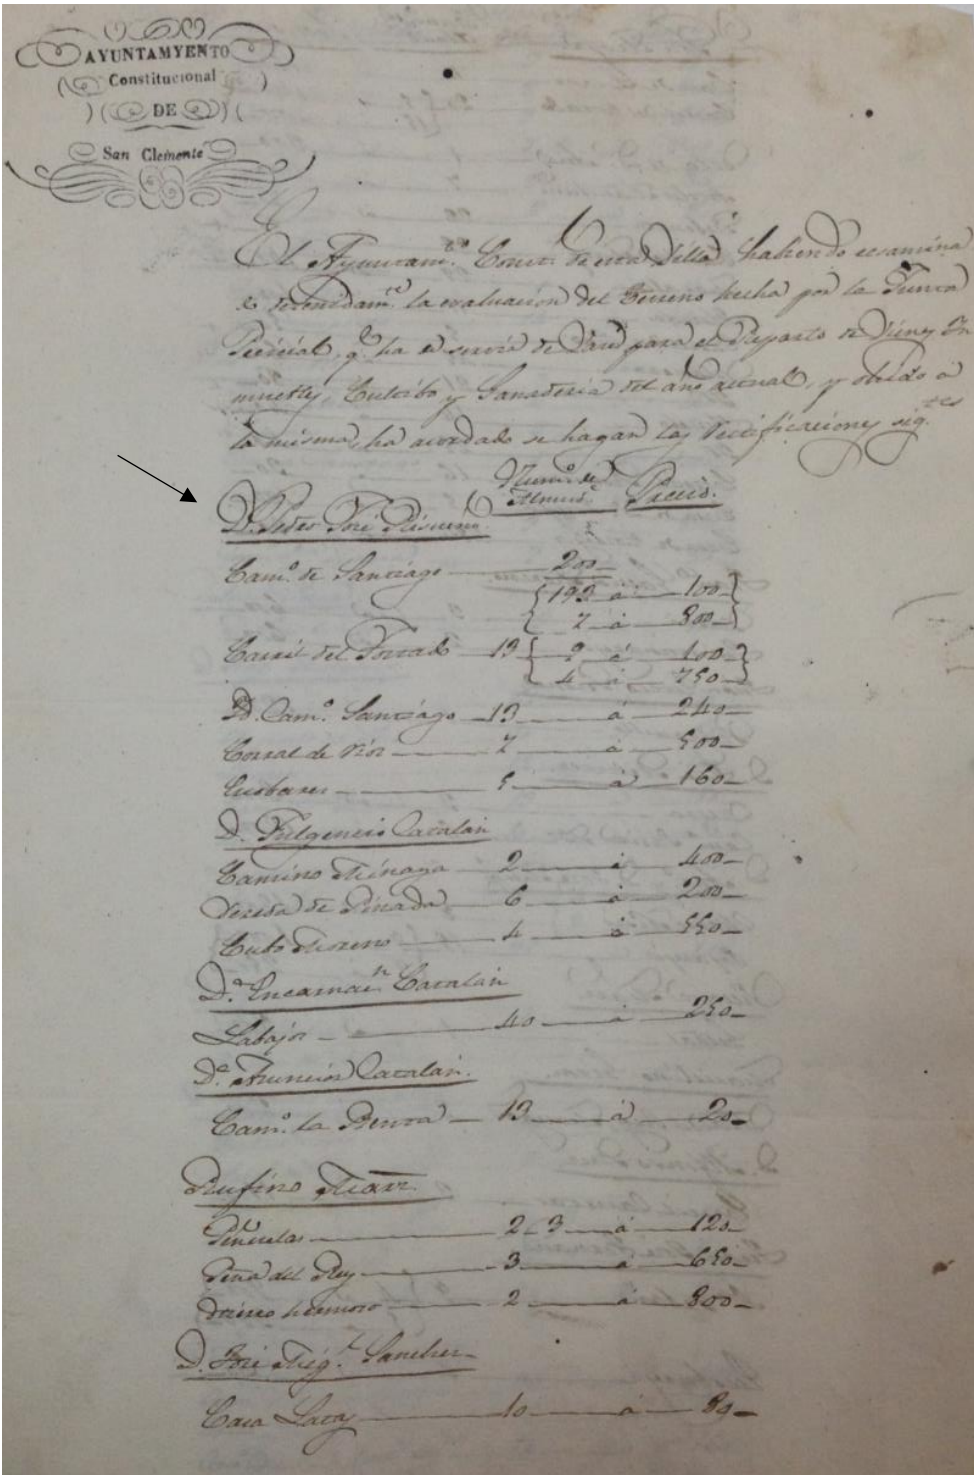 AYUNTAMYENTO
Constitucional
DE
San Clemente
El Ayuntam.to Const. de esta Villa habiendo ecsamina
do detenidam.te la evaluacion del terreno hecha por la Junta
Pericial, q.e ha de servir de Base para el Reparto de Vienes In
muebles, Cultibo y Ganaderia del año actual, y ohido a
la misma, ha acordado se hagan las rectificaciones sig.tes
Num.o de
Almud.s Precio.
D. Pedro José Risueño.
Cam.o de Santiago 200
193 á 100
7 á 800
Carril del 13 9 á 100
4 á 750
Id. Cam.o Santiago 13 á 240
Corral de 7 á 500
Escobares 5 á 160
D. Fulgencio Catalán
Camino Miñaya 2 á 400
Vereda de Pinada 6 á 200
Cubo Moreno 4 á 550
D.a Encarnac.n Catalán
Labajos 40 á 250
D.a Asuncion Catalan.
Cam.o la 13 á 20
Rufino Marz.
Piñuelas 2 3 á 120
Peña del Rey 3 á 650
hermoso 2 á 800
D. José Mig.l Sanchez
Casa Lacay 10 á 80